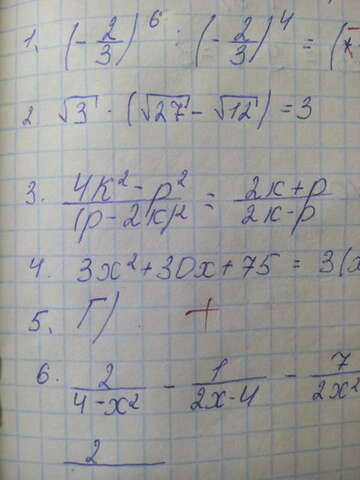 1. (-2/3)^6 : (-2/3)^4 = (
2. √3 · (√27 - √12) = 3
3. (4к² - р²)/(р - 2к)² = (2к + р)/(2к - р)
4. 3x² + 30x + 75 = 3(x
5. Г) +
6. 2/(4 - x²) - 1/(2x - 4) - 7/(2x²
2